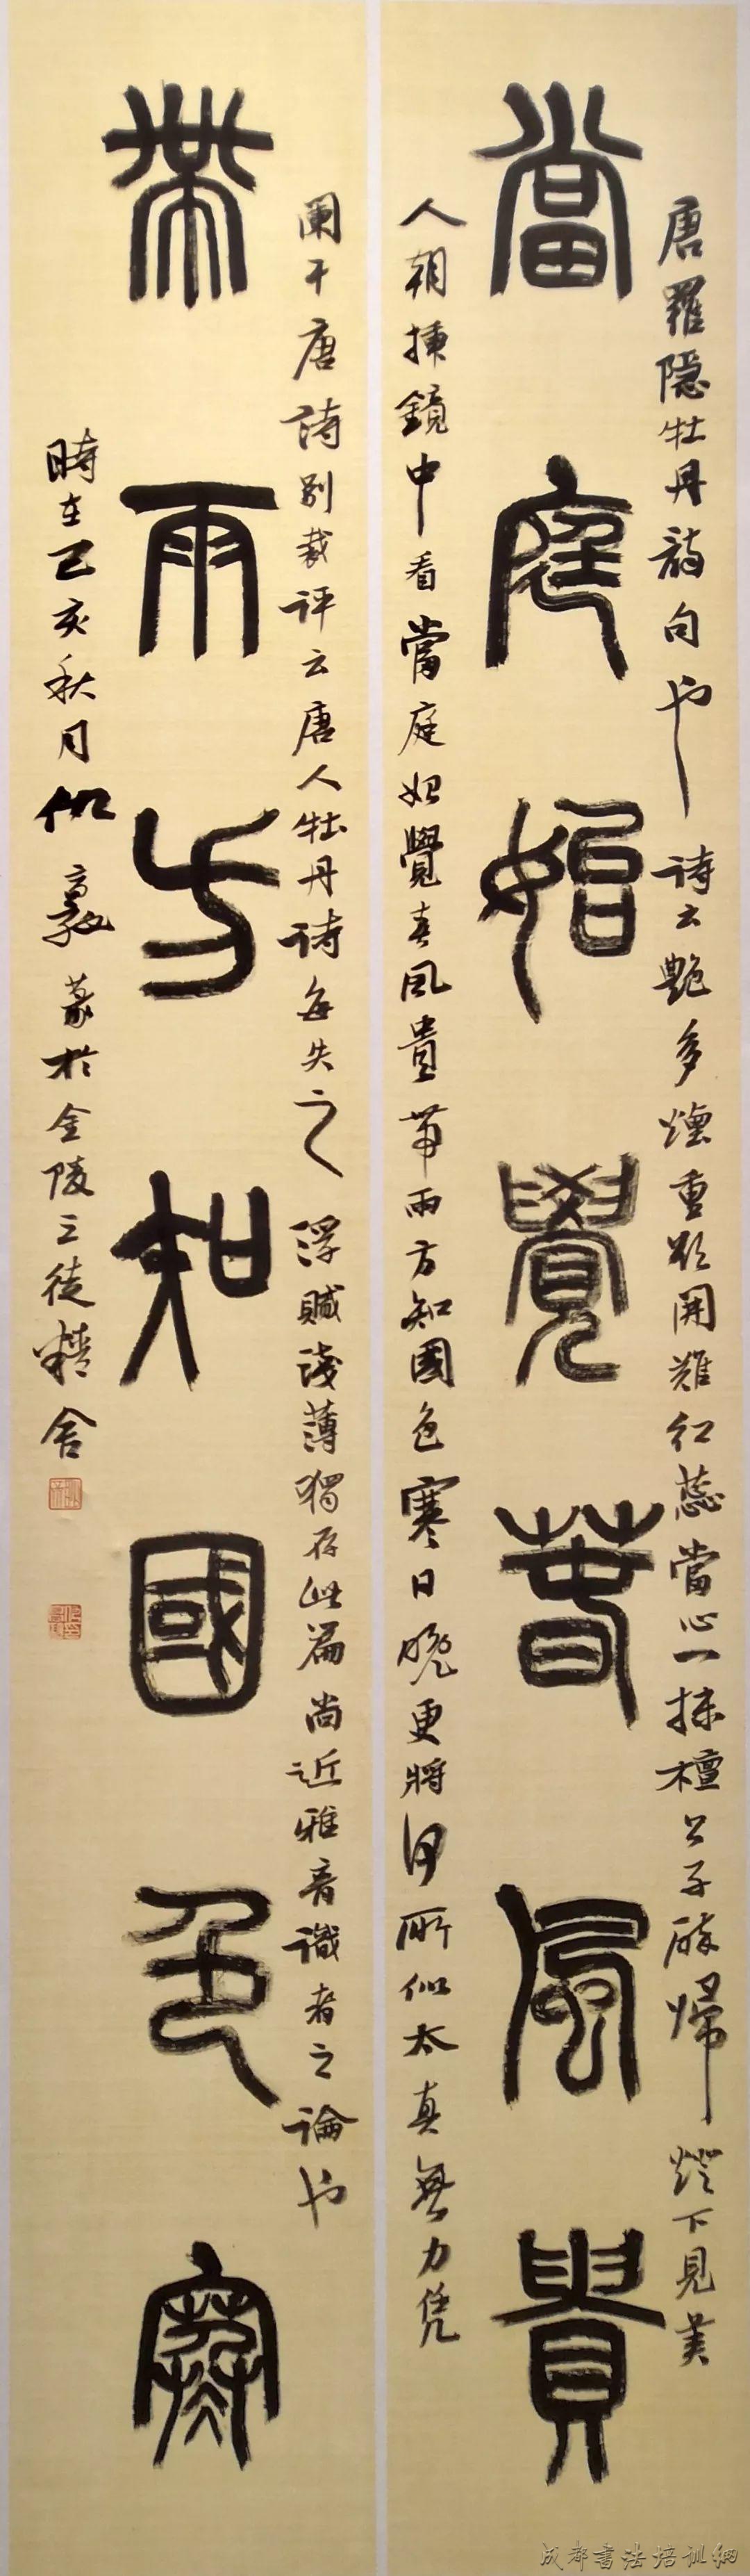 唐羅隱牡丹詩句也詩云艷多煙重欲開難紅蕊當心一抹檀公子醉歸燈下見美
當庭始覺春風貴
人朝插鏡中看當庭始覺春風貴帶雨方知國色寒日晚更將何所似太真無力凭
闌干唐詩別裁評云唐人牡丹詩每失之浮膩淺薄獨存此篇尚近雅音識者之論也
帶雨方知國色寒
時在己亥秋月仉敦篆於金陵三徒精舍
成都書法培训網